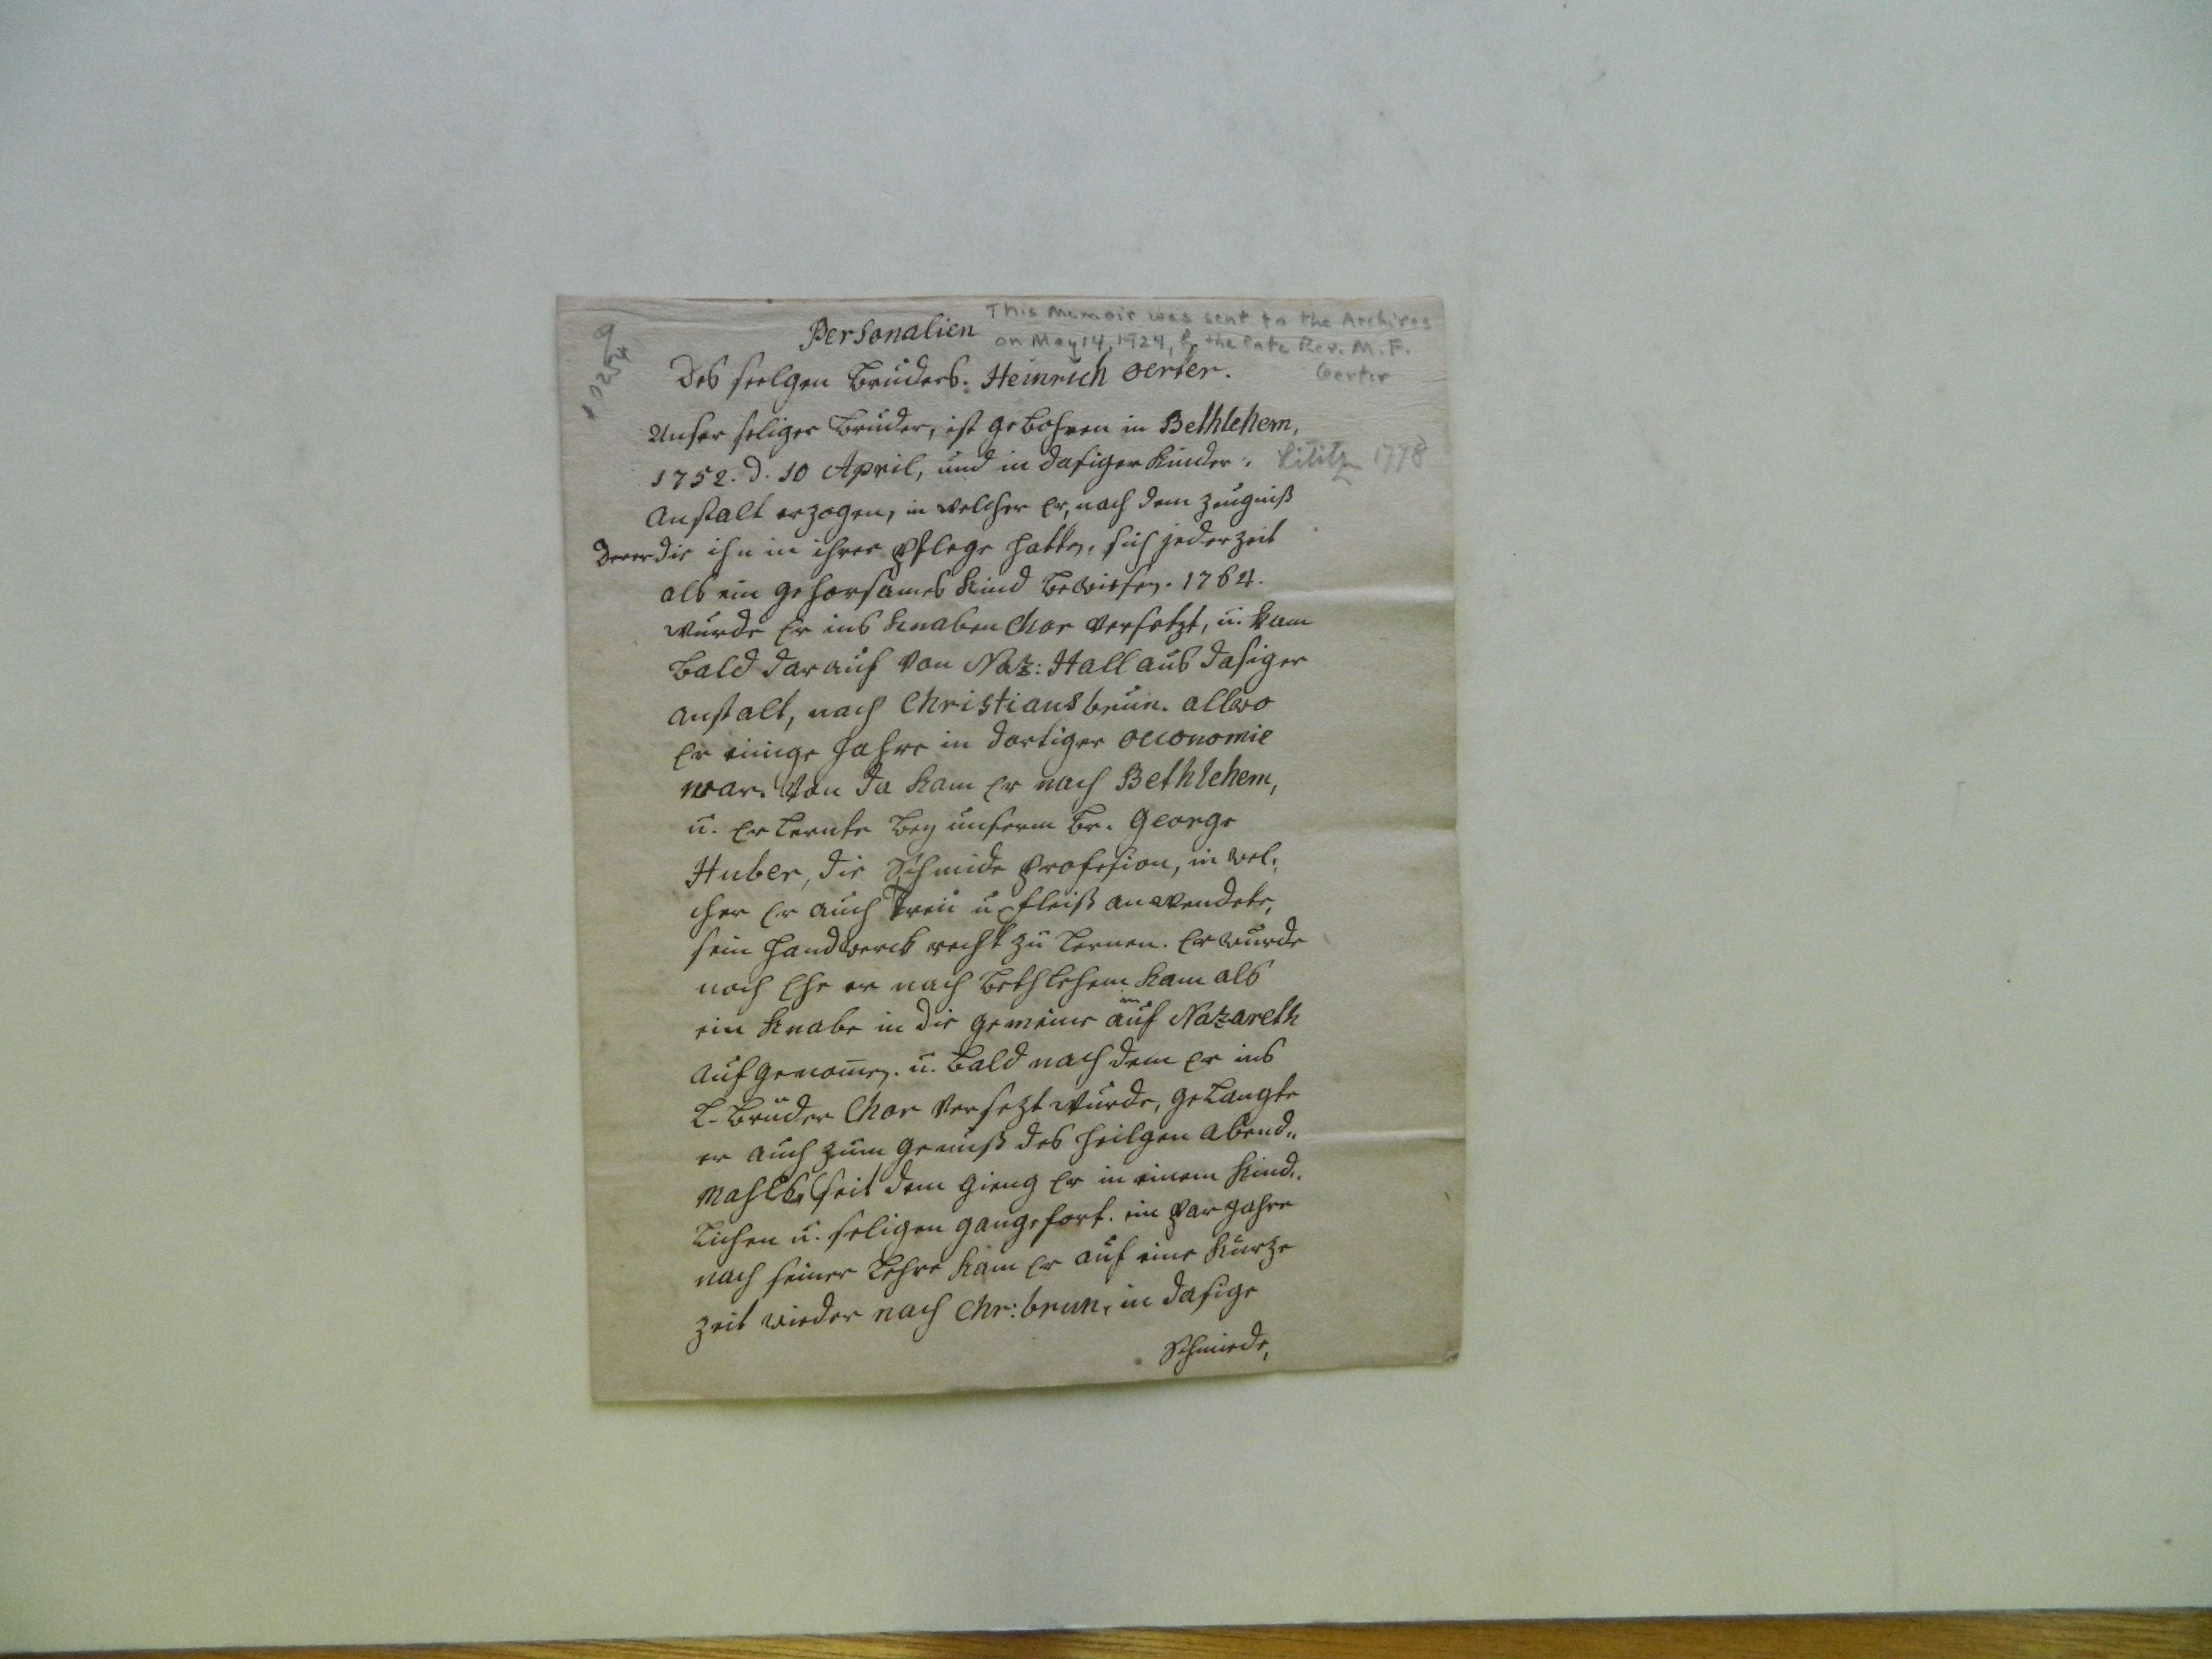 This Memoir was sent to the Archives
on May 14, 1924, by the late Rev. M. F.
Oerter
Personalien
Des seelgen Bruders. Heinrich Oerter.
Unser seliger Bruder, ist gebohren in Bethlehem,
Lititz 1778
1752. d. 10 April, und in dasiger Kinder:
Anstalt erzogen, in welcher Er, nach dem Zeugniß
derer die ihn in ihrer Pflege hatten, sich jederzeit
als ein gehorsames Kind bewiesen. 1764.
wurde Er ins Knaben Chor versetzt, u. kam
bald darauf von Naz: Hall aus dasiger
Anstalt, nach Christiansbrun. allwo
Er einige Jahre in dortiger Oeconomie
war. Von da kam Er nach Bethlehem,
u. Erlernte bey unserm Br. George
Huber, die Schmide Profesion, in wel:
cher Er auch Treu u. Fleiß anwendete,
sein Handwerck recht zu lernen. Er wurde
noch Ehe er nach Bethlehem kam als
ein Knabe in die Gemeine auf Nazareth
aufgenom̄en. u. bald nach dem Er ins
L. Brüder Chor versezt wurde, gelangte
er auch zum Genuß des heilgen Abend„
Mahls, seit dem gieng Er in einem Kind„
lichen u. seligen Gange fort. ein par Jahre
nach seiner Lehre kam Er auf eine kurze
Zeit wieder nach Chr: brun, in dasige
Schmiede,